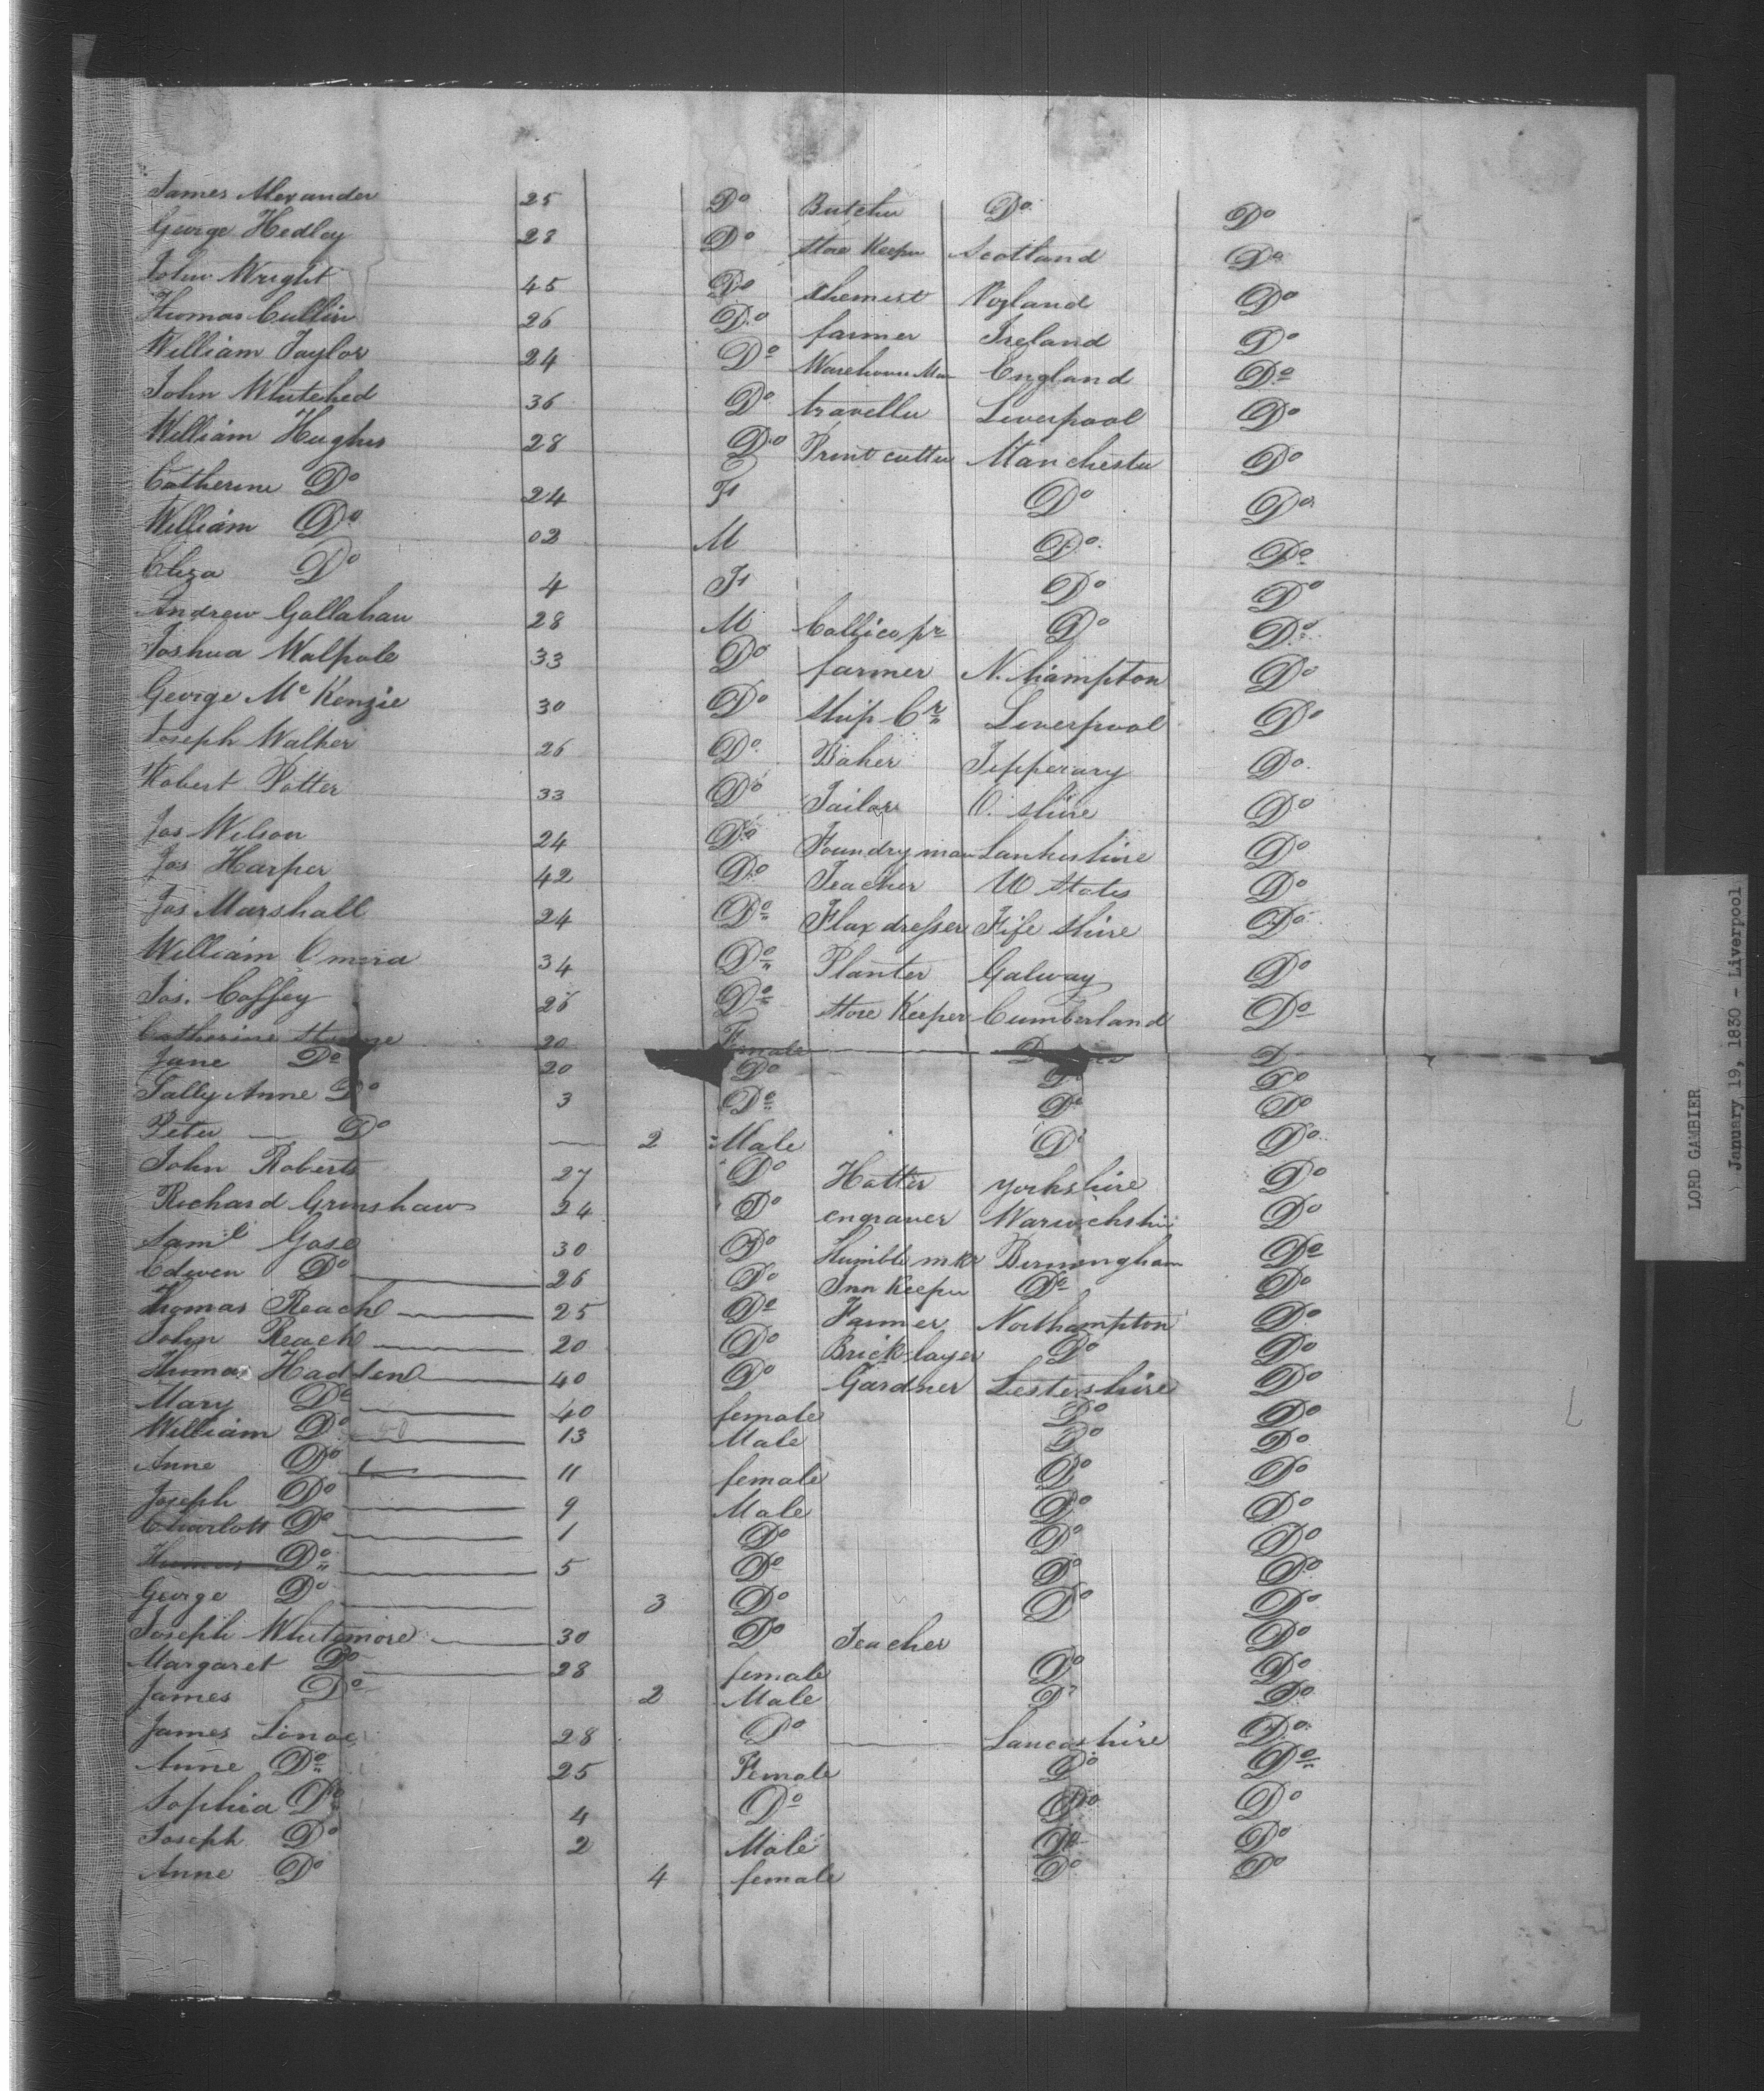 James Alexander 25 Do Butcher Do Do
George Hedley 28 Do Store Keeper Scotland Do
John Wright 45 Do Do
Thomas Cullin 26 Do farmer Ireland Do
William Taylor 24 Do Warehouse Man England Do
John Whitehed 36 Do traveller Liverpool Do
William Hughes 28 Do Print cutter Manchester Do
Catherine Do 24 F Do Do
William Do 02 M Do Do
Eliza Do 4 F Do Do
Andrew Gallahan 28 M Callico pr Do Do
Joshua Walpole 33 Do farmer N. hampton Do
George Mc Kenzie 30 Do Ship Cr Liverpool Do
Joseph Walker 26 Do Baker Tipperary Do
Robert Potter 33 Do Tailor shire Do
Jas Wilson 24 Do Foundry man Do
Jas Harper 42 Do Teacher U States Do
Jas Marshall 24 Do Flax dresser Fife Shire Do
William Omera 34 Do Planter Galway Do
Jas. Coffey 26 Do Store Keeper Cumberland Do
Catherine 20 Female D
Jane Do 20 Do Do Do
Sally Anne Do 3 Do Do Do
Peter Do 2 Male Do Do
John Roberts 27 Do Hatter Yorkshire Do
Richard Grinshaw 24 Do engraver Do
Saml Gose 30 Do Birmingham Do
Edwen Do 26 Do Inn Keeper Do Do
Thomas Reach 25 Do Farmer Northampton Do
John Reach 20 Do Brick-layer Do Do
Thomas Hadden 40 Do Gardner Lestershire Do
Mary Do 40 female Do Do
William Do 13 Male Do Do
Anne Do 11 female Do Do
Joseph Do 9 Male Do Do
Charlott Do 1 Do Do Do
Thomas Do 5 Do Do Do
George Do 3 Do Do Do
Joseph Whitemore 30 Do Teacher Do
Margaret Do 28 female Do Do
James Do 2 Male Do Do
James 28 Do Lancashire Do
Anne Do 25 Female Do Do
Sophia Do 4 Do Do Do
Joseph Do 2 Male Do Do
Anne Do 4 female Do Do
LORD GAMBIER
January 19, 1830 - Liverpool